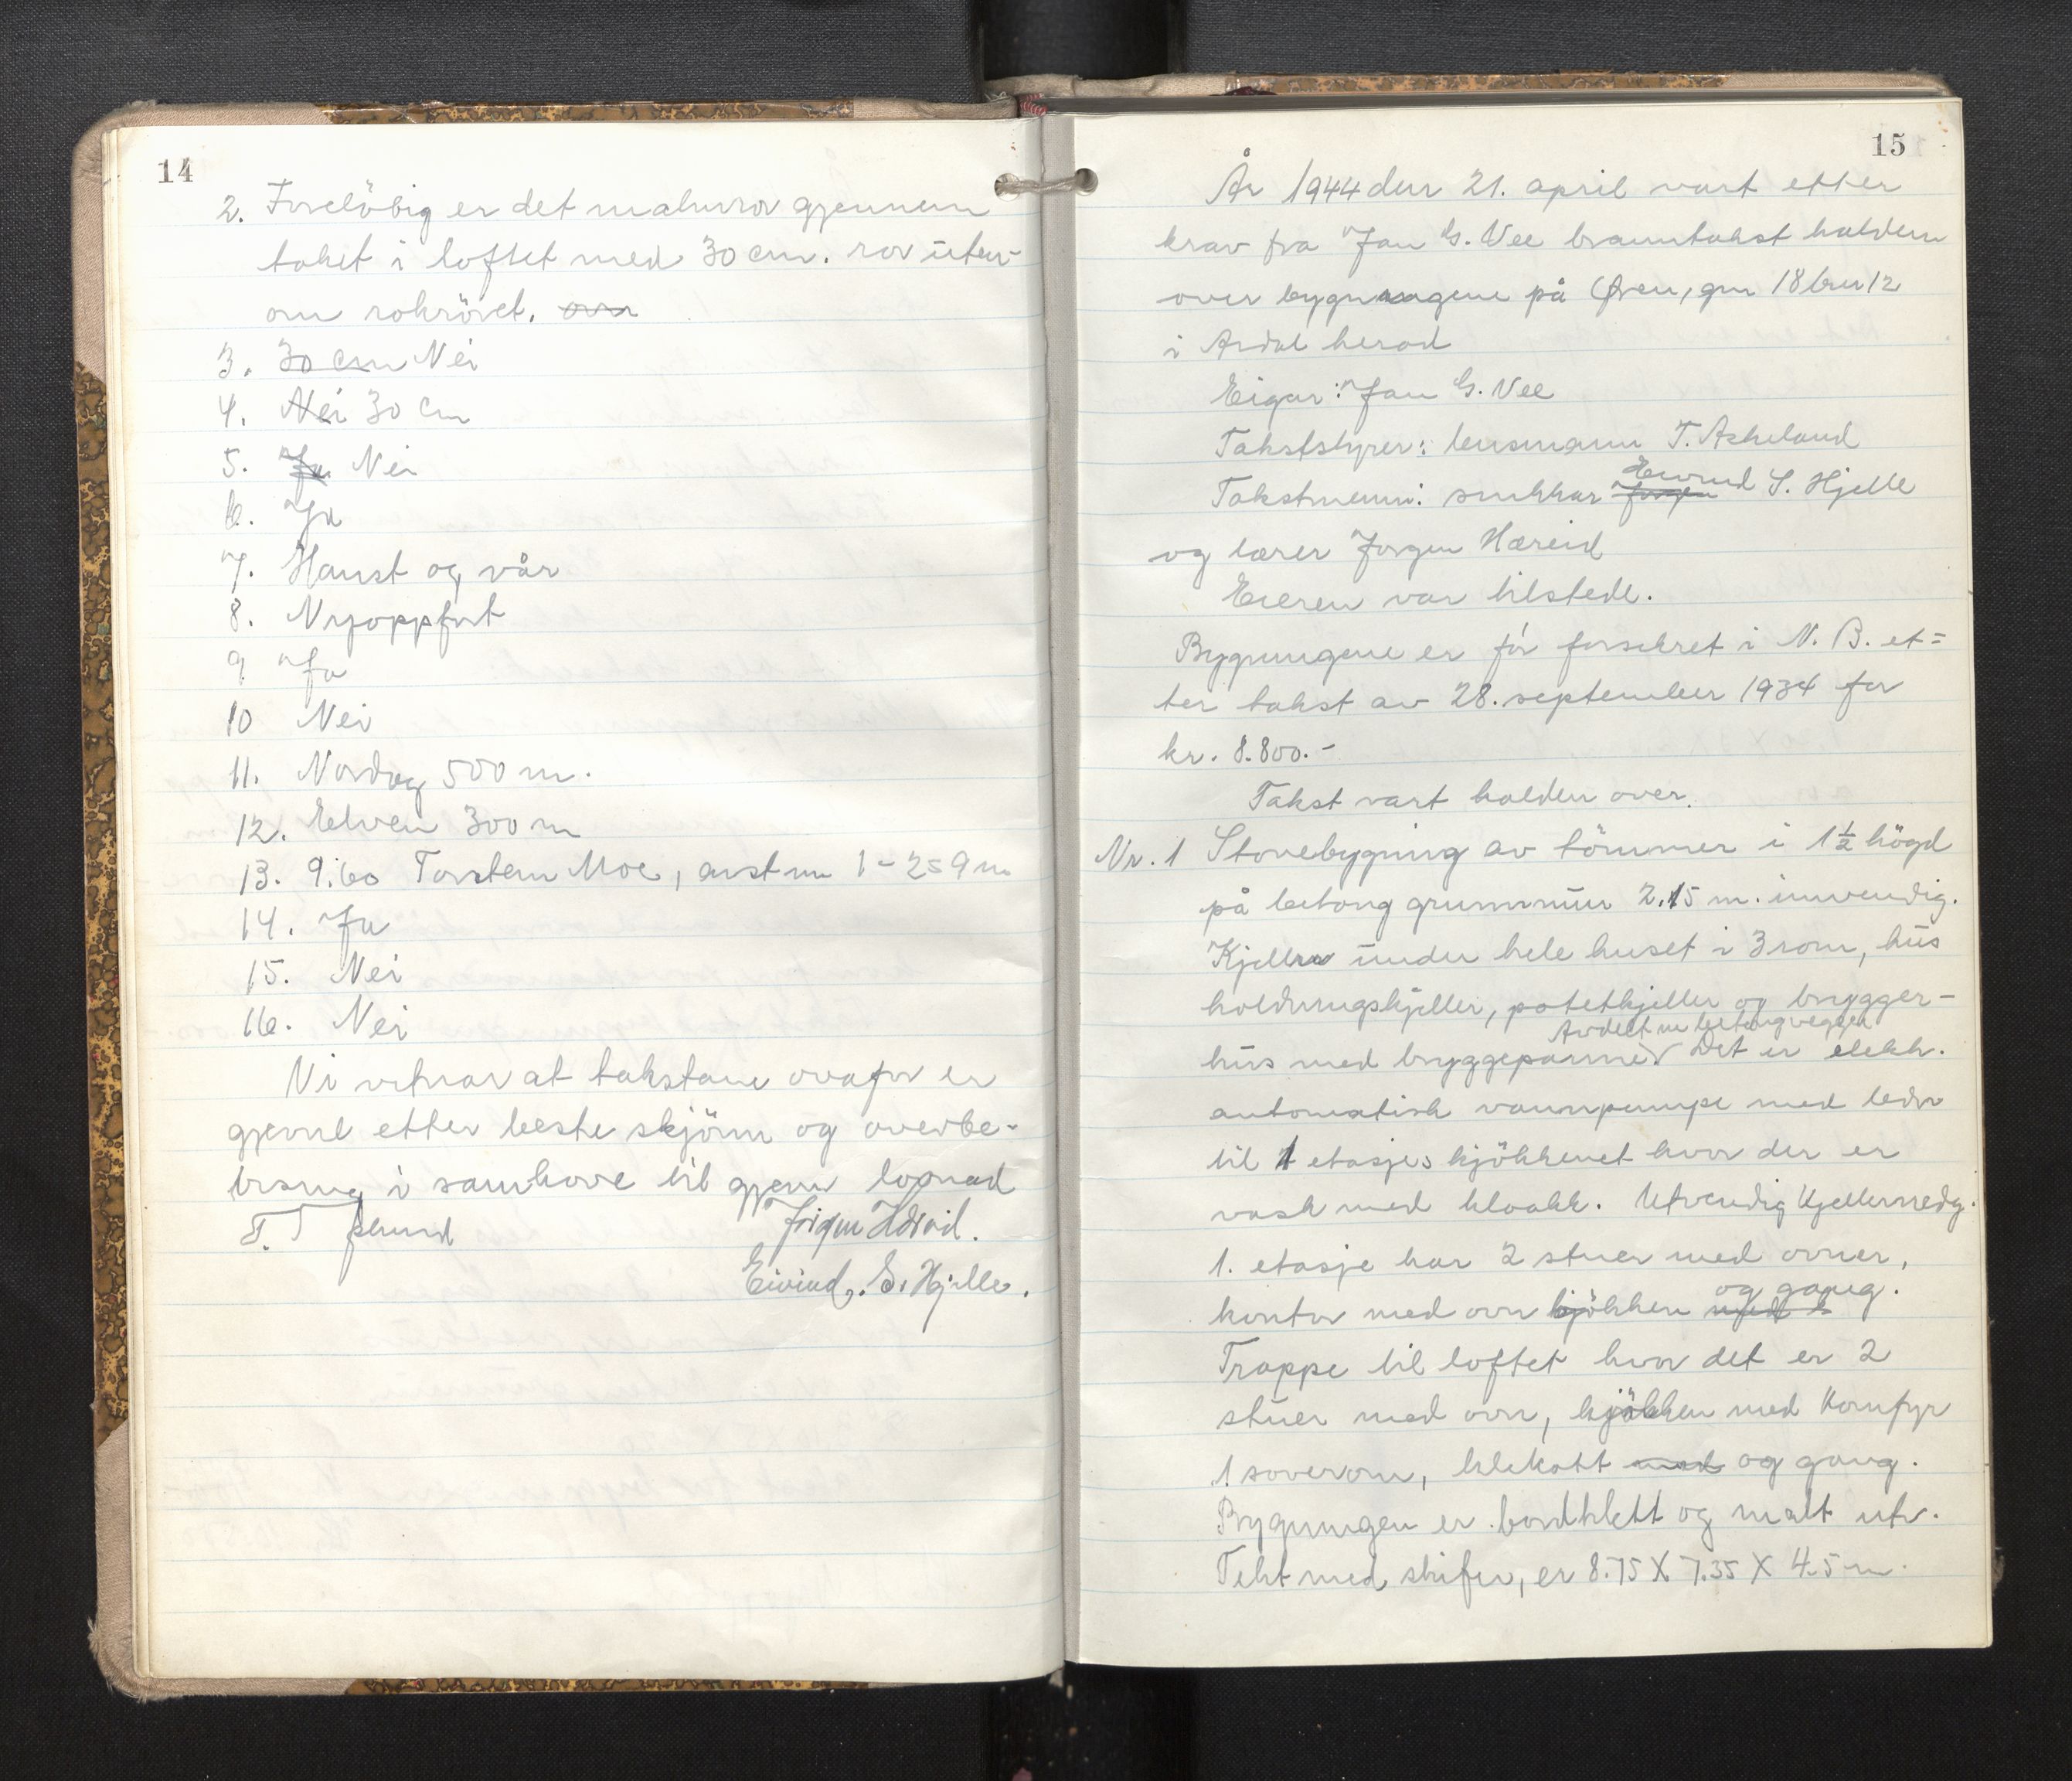 14
2. Forelöbig er det malmror gjennem
taket i loftet med 30 cm. ror uten-
om rokröret. ovn
3. 30 cm Nei
4. Nei 30 cm
5. Ja Nei
6. Ja
7. Haust og vår
8. Nyoppfort
9 Ja
10 Nei
11. Nordog 500 m.
12. Elven 300 m
13. 9.60 Torstein Moe, avst nr 1-2 = 9 m
14. Ja
15. Nei
16. Nei
Vi vitnar at takstane ovafor er
gjevne etter beste skjönn og overbe-
visning i samhove til gjeven lovnad
T. T
Jörgen Hæreid.
Eivind. S. Hjelle.
15
År 1944 den 21. april vart etter
krav fra Jan G. Vee branntakst holden
over bygningene på Øren, gnr 18 bnr 12
i Ardal herad
Eigar: Jan G. Vee
Takststyrer: lensmann T. Askeland
Takstmenn: snikkar Jorgen Eivind S. Hjelle
og lærer Jorgen Hæreid
Eieren var tilstede.
Bygningene er för forsikret i N. B. et=
ter takst av 28. september 1934 for
kr. 8.800.-
Takst vart holden over.
Nr. 1 Stovebygning av tömmer i 1½ högd
på betong grunnmur 2.15 m. innvendig.
Kjeller under hele huset i 3 rom, hus
holdningskjeller, potetkjeller og brygger-
Avdelt m betongvegger
hus med bryggepanne. Det er elektr.
automatisk vannpumpe med ledn
til 1 etasjes kjökkenet hvor der er
vask med kloakk. Utvendig kjellernedg.
1. etasje har 2 stuer med ovner,
kontor med ovn kjökken med k og gang.
Trappe til loftet hvor det er 2
stuer med ovn, kjökken med komfyr
1 soverom, klekott med og gang.
Bygningen er bordklett og malt utv.
Tekt med skifer, er 8.75 X 7.35 X 4.5 m.